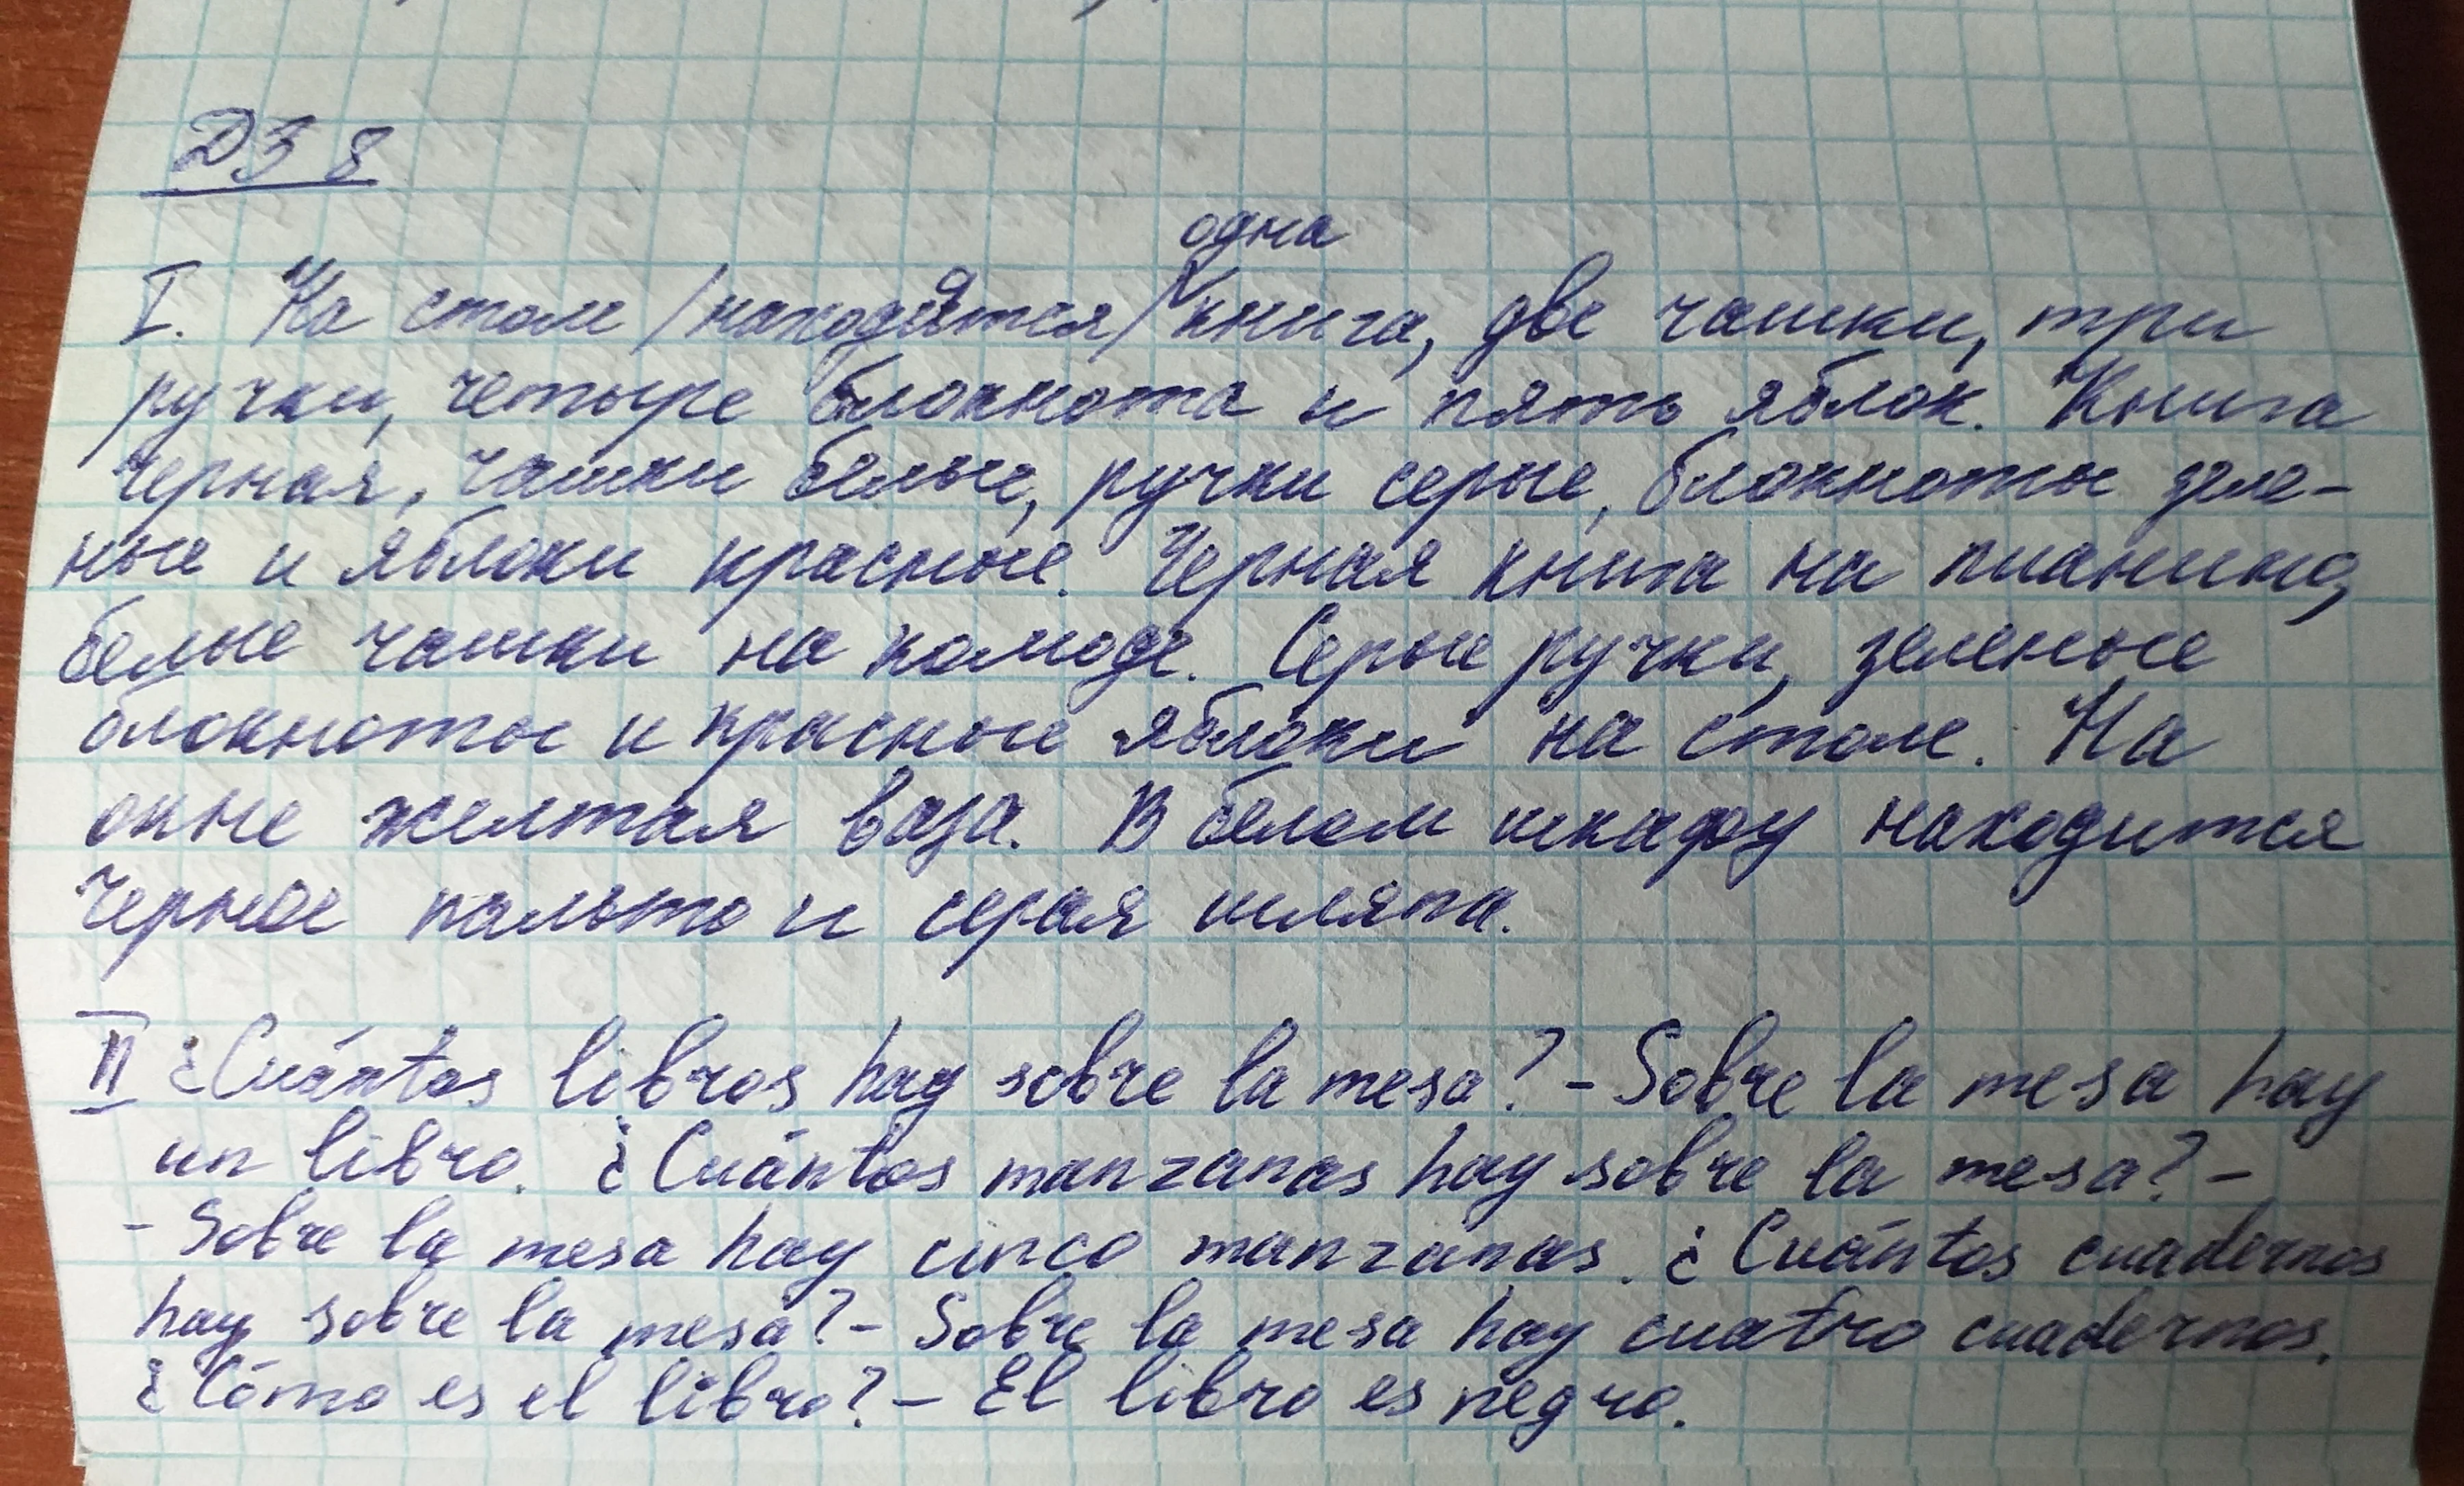 ДЗ 8
одна
I. На столе /находятся/ книга, две чашки, три
ручки, четыре блокнота и пять яблок. Книга
черная, чашки белые, ручки серые, блокноты зеле-
ные и яблоки красные. Черная книга на пианино,
белые чашки на комоде. Серые ручки, зеленые
блокноты и красные яблоки на столе. На
окне желтая ваза. В белом шкафу находится
черное пальто и серая шляпа.
II ¿Cuántos libros hay sobre la mesa? - Sobre la mesa hay
un libro. ¿Cuántos manzanas hay sobre la mesa? -
- Sobre la mesa hay cinco manzanas. ¿Cuántos cuadernos
hay sobre la mesa? - Sobre la mesa hay cuatro cuadernos.
¿Cómo es el libro? - El libro es negro.